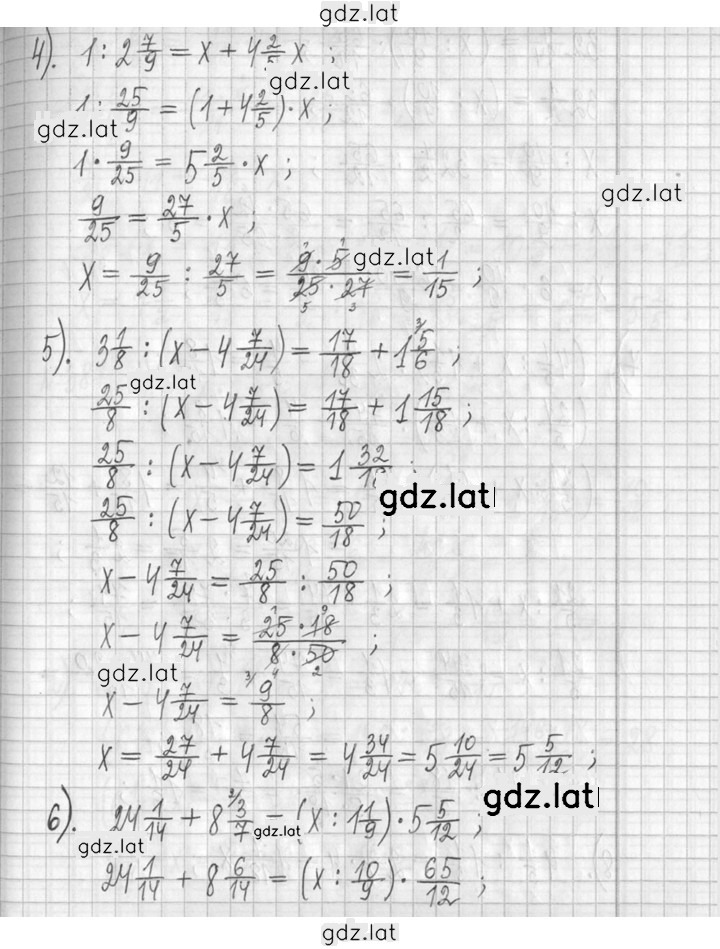 gdz.lat
4). 1 : 2 7/9 = x + 4 2/5 x ;
gdz.lat
1 : 25/9 = (1 + 4 2/5) · x ;
gdz.lat
1 · 9/25 = 5 2/5 · x ;
gdz.lat
9/25 = 27/5 · x ;
x = 9/25 : 27/5 = 9 · 5/25 · 27 = 1/15 ;
gdz.lat
5). 3 1/8 : (x − 4 7/24) = 17/18 + 1 5/6 ;
gdz.lat
25/8 : (x − 4 7/24) = 17/18 + 1 15/18 ;
25/8 : (x − 4 7/24) = 1 32/18 ;
gdz.lat
25/8 : (x − 4 7/24) = 50/18 ;
x − 4 7/24 = 25/8 : 50/18 ;
x − 4 7/24 = 25 · 18/8 · 50 ;
gdz.lat
x − 4 7/24 = 9/8 ;
x = 27/24 + 4 7/24 = 4 34/24 = 5 10/24 = 5 5/12 ;
gdz.lat
6). 24 1/14 + 8 3/7 = (x : 1 1/9) · 5 5/12 ;
gdz.lat
gdz.lat
24 1/14 + 8 6/14 = (x : 10/9) · 65/12 ;
gdz.lat